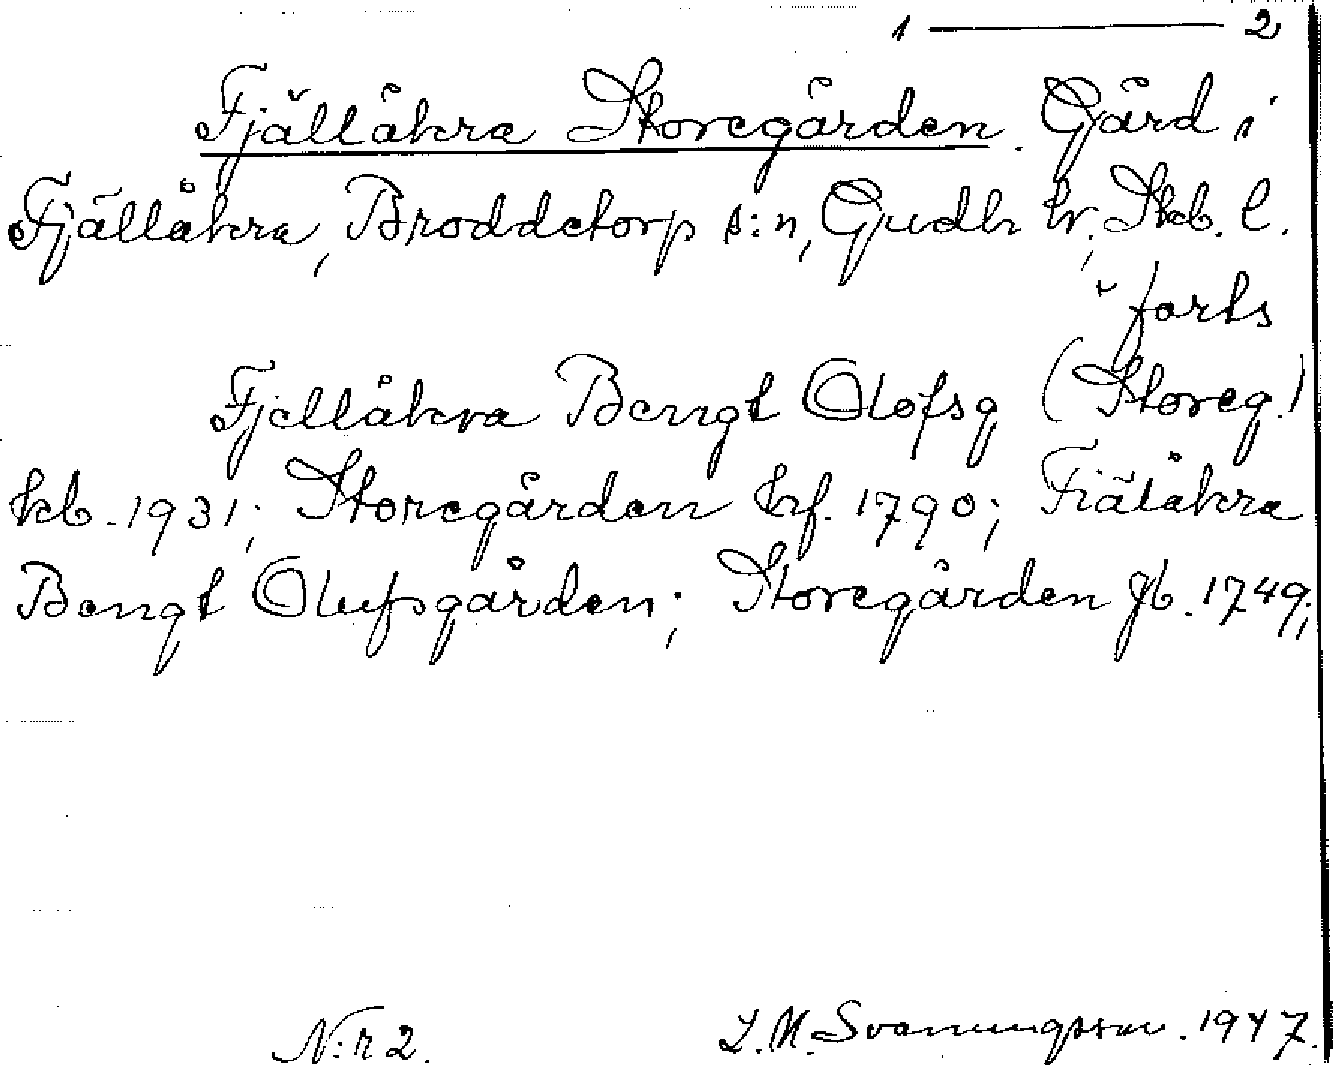 1 ——— 2
Fjälläkra Storegården. Gård i
Fjällåkra, Broddetorp s:n, Gudh hr, Skb. l.
forts
Fjellåkra Bengt Olofsg (Storeg.)
kb. 1931; Storegården hf. 1790; Fiälåkra
Bengt Olufsgården; Storegården jb. 1749;
N:r 2. 1947.